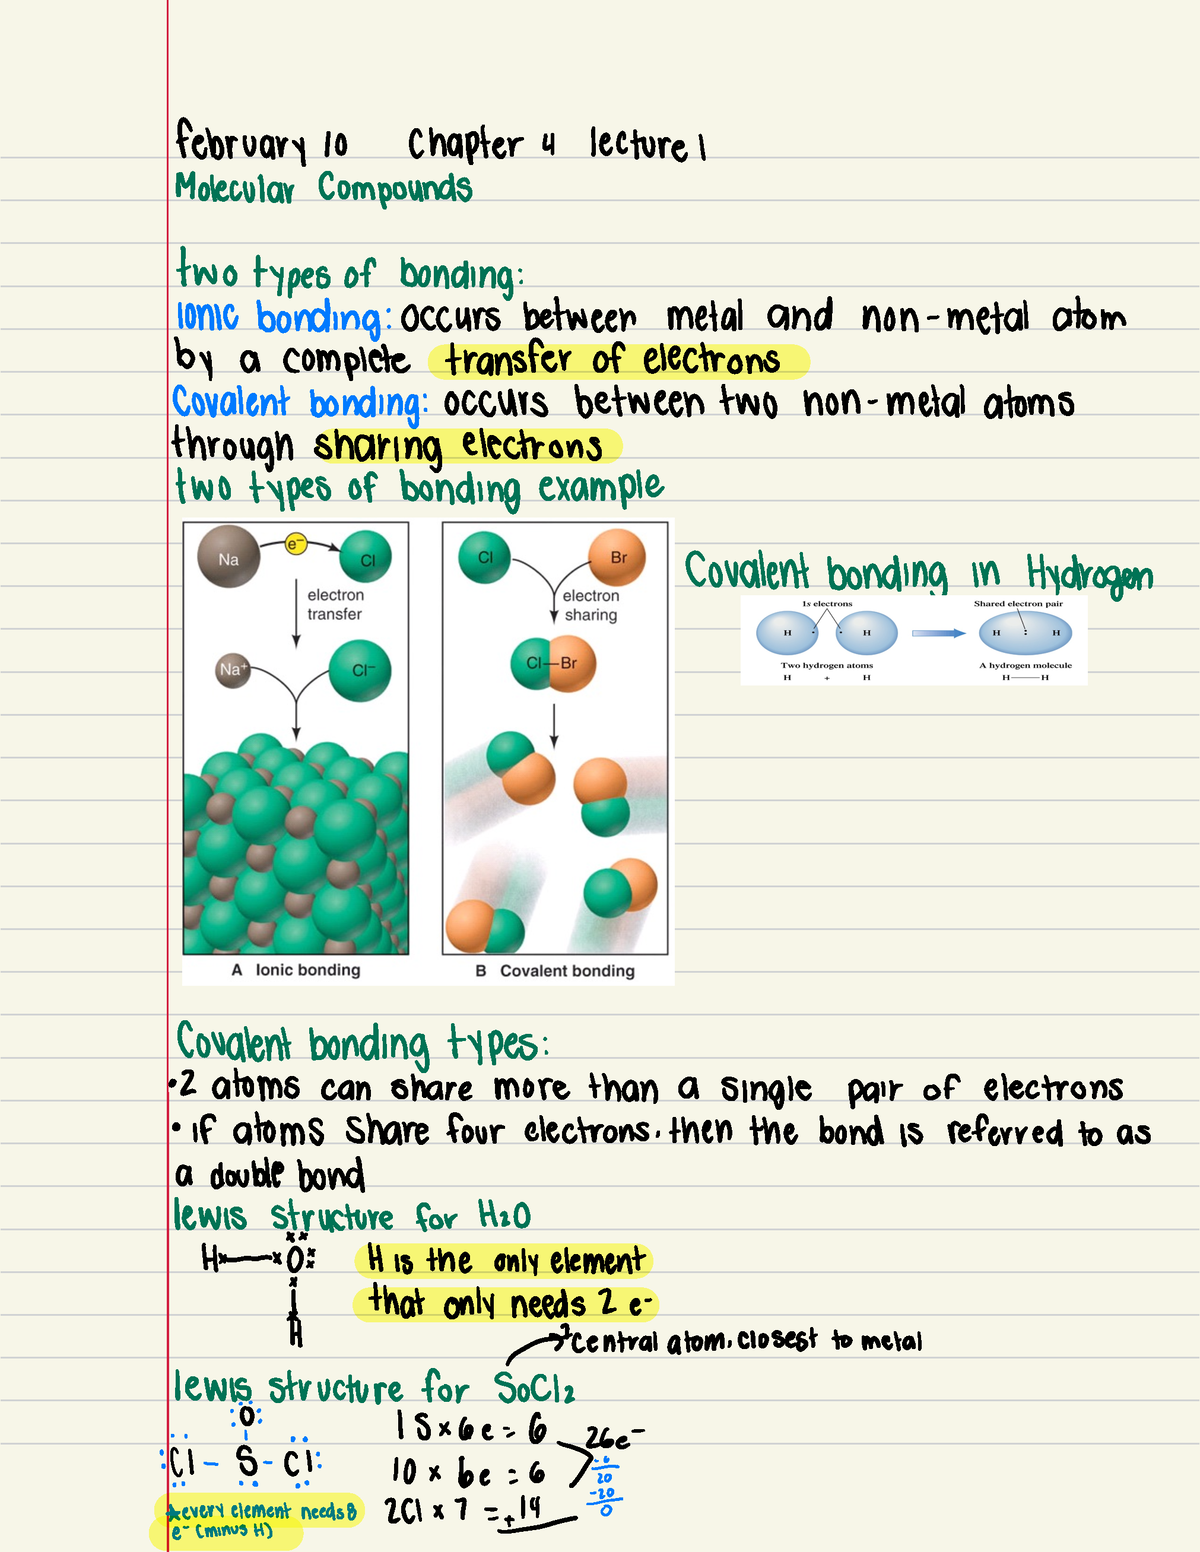 february 10 Chapter 4 lecture 1
Molecular Compounds
two types of bonding:
Ionic bonding: occurs between metal and non-metal atom
by a complete transfer of electrons
Covalent bonding: occurs between two non-metal atoms
through sharing electrons
two types of bonding example
Na e⁻ Cl
electron
transfer
Na⁺ Cl⁻
A Ionic bonding
Cl Br
electron
sharing
Cl—Br
B Covalent bonding
Covalent bonding in Hydrogen
1s electrons Shared electron pair
H H H : H
Two hydrogen atoms A hydrogen molecule
H + H H—H
Covalent bonding types:
• 2 atoms can share more than a single pair of electrons
• if atoms share four electrons, then the bond is referred to as
a double bond
lewis structure for H₂O
H x—x O
H
H is the only element
that only needs 2 e-
Central atom, closest to metal
lewis structure for SoCl₂
O
Cl - S - Cl
1 S x 6 e = 6
1O x 6e = 6
2Cl x 7 = +14
26e-
-6
20
-20
0
*every element needs 8
e- (minus H)